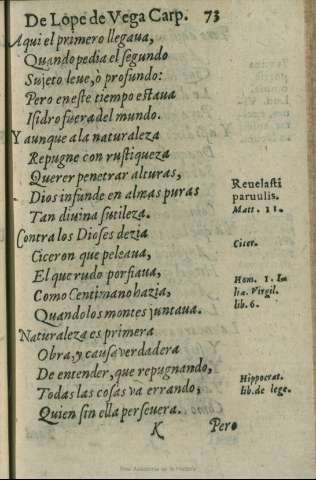 De Lope de Vega Carp. 73
Aqui el primero llegaua,
Quando pedia el segundo
Sujeto leue, ò profundo:
Pero eneste tiempo estaua
Isidro fuera del mundo.
Y aunque a la naturaleza
Repugne con rustiqueza
Querer penetrar alturas,
Dios infunde en almas puras
Tan diuina sutileza.
Contra los Dioses dezia
Ciceron que peleaua,
El que rudo porfiaua,
Como Centimano hazia,
Quando los montes juntaua.
Naturaleza es primera
Obra, y causa verdadera
De entender, que repugnando,
Todas las cosas va errando,
Quien sin ella perseuera.
K Pero
Reuelasti
paruulis.
Matt. 11.
Cicer.
Hom. 1. In
Virgil.
lib. 6.
Hippocrat.
lib. de lege.
Real Academia de la Historia